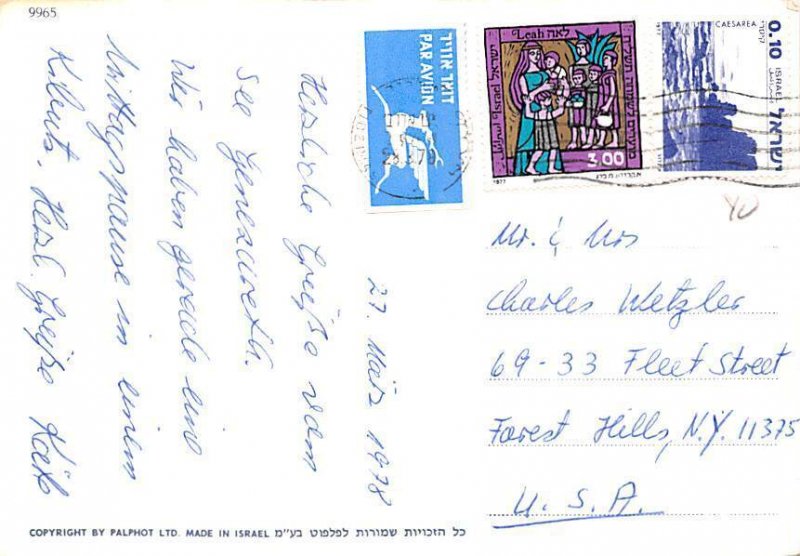 9965
27. März 1978
Herzliche Grüße vom
See Genezareth.
Wir haben gerade eine
Mittagspause in einem
Kibbuts. Herzl. Grüße Käte
דואר אוויר
PAR AVION
Leah לאה
ישראל Israel
3.00
1977
0.10
CAESAREA
קיסריה
ISRAEL
ישראל
Mr. & Mrs
Charles Wetzler
69-33 Fleet Street
Forest Hills, N.Y. 11375
U.S.A.
COPYRIGHT BY PALPHOT LTD. MADE IN ISRAEL כל הזכויות שמורות לפלפוט בע"מ